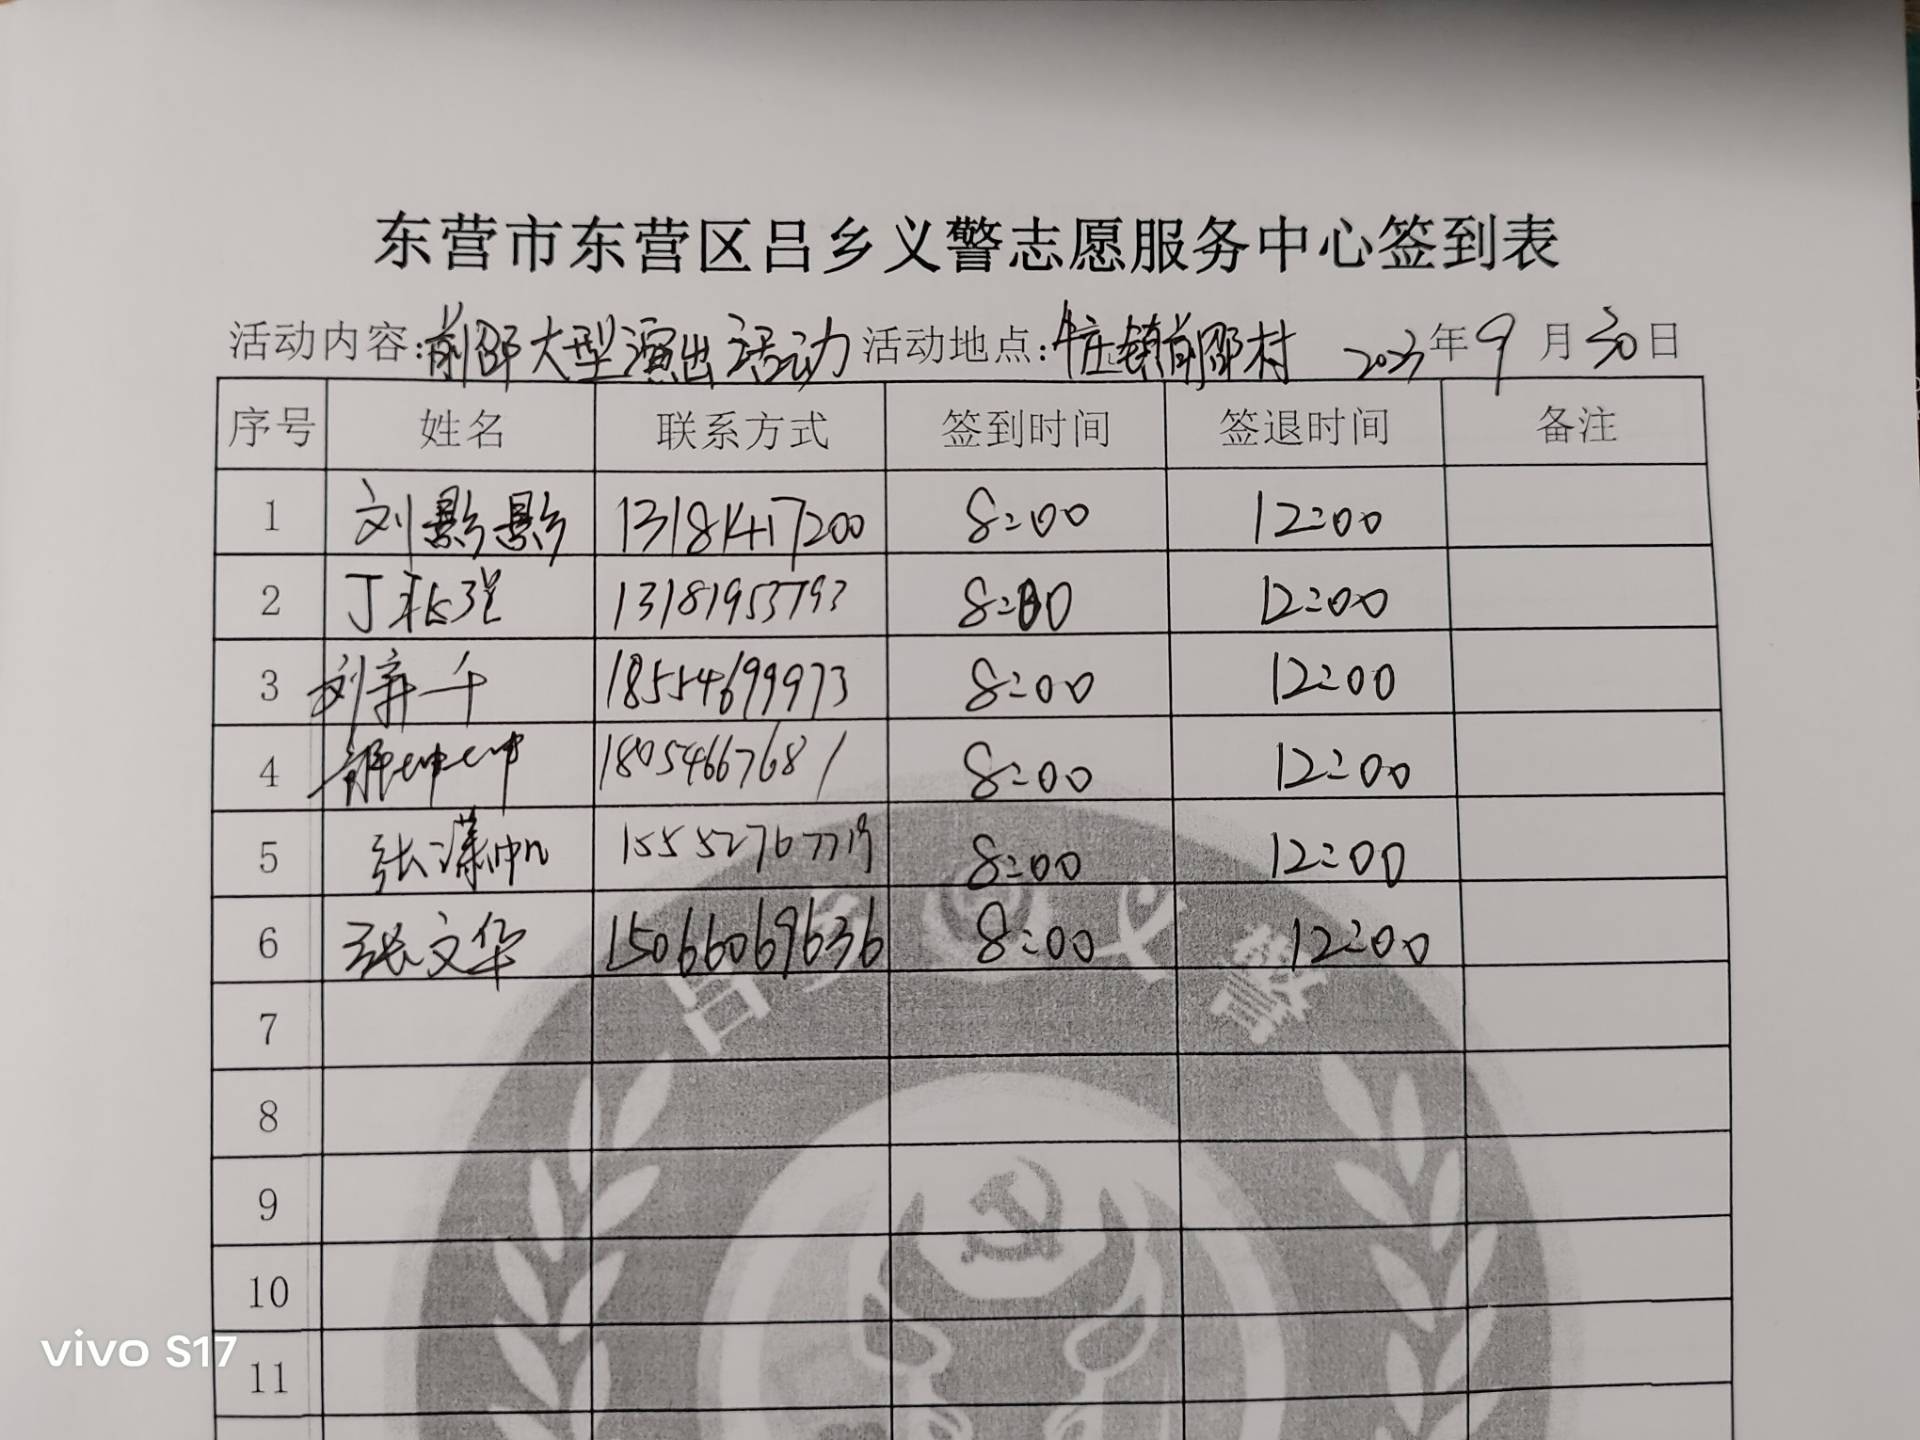 东营市东营区吕乡义警志愿服务中心签到表
活动内容:前邵大型演出活动 活动地点:牛庄镇前邵村 2023年9月30日
序号 姓名 联系方式 签到时间 签退时间 备注
1 刘影影 13181417200 8:00 12:00
2 丁 13181953793 8:00 12:00
3 刘 千 18554699973 8:00 12:00
4 坤坤 18054667681 8:00 12:00
5 张潇帆 15552767719 8:00 12:00
6 张文华 15066069636 8:00 12:00
7
8
9
10
11
吕乡义警
vivo S17